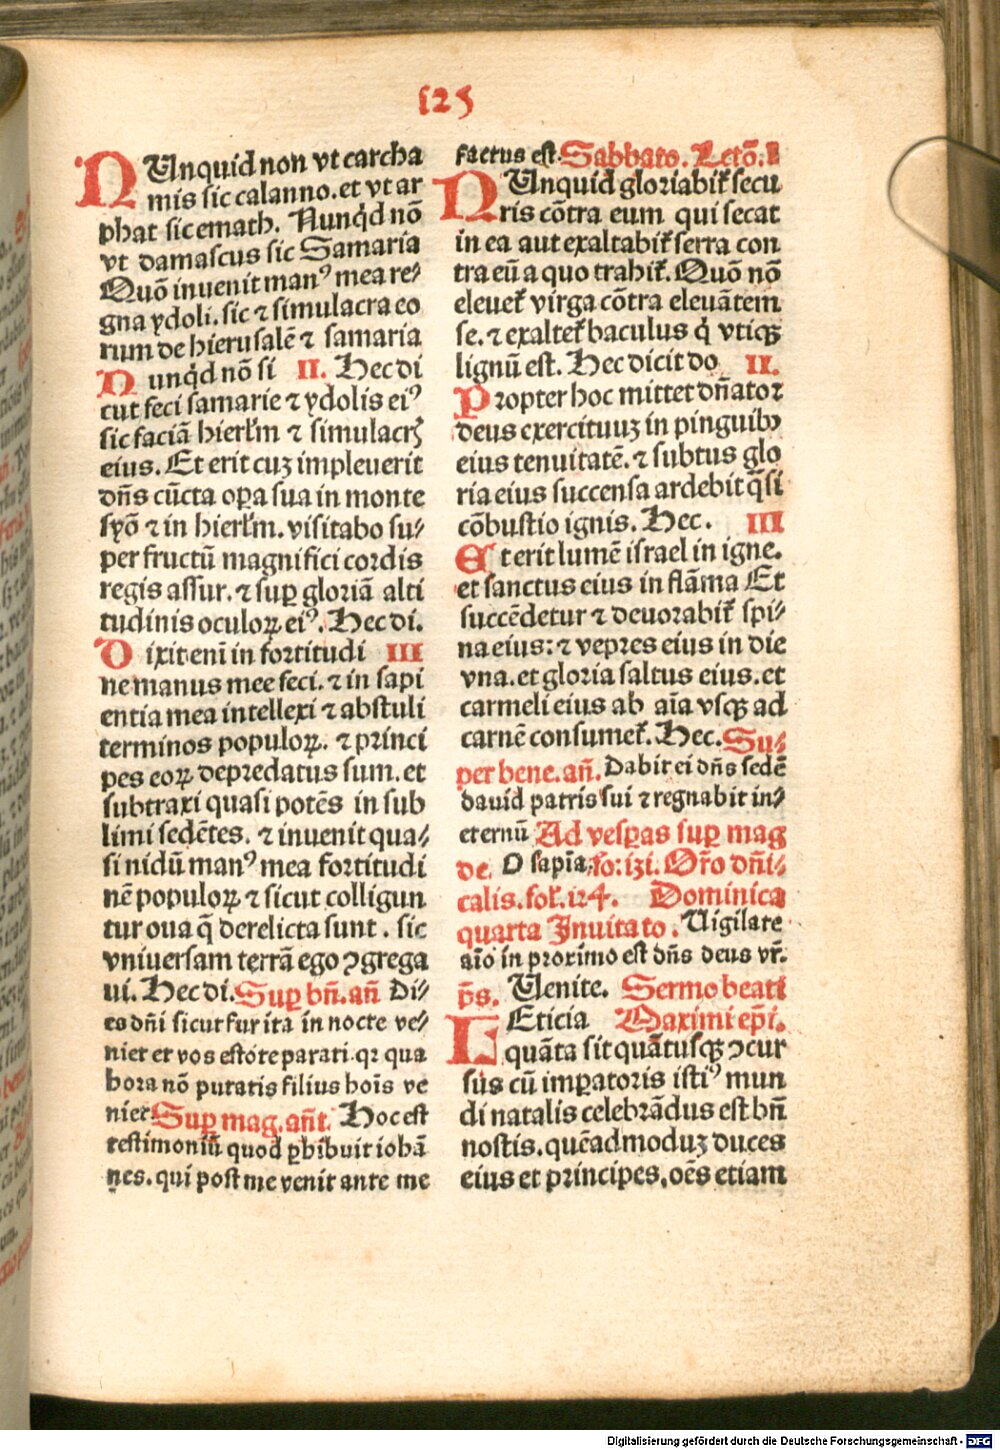 125
NUnquid non vt carcha
mis sic calanno. et vt ar
phat sic emath. Nunq̇d nō
vt damascus sic Samaria
Quō inuenit manꝰ mea re⸗
gna ydoli. sic ⁊ simulacra eo
rum de hierusalē ⁊ samaria
Nunq̇d nō si II. Hec di
cut feci samarie ⁊ ydolis eiꝰ
sic faciā hierl̄m ⁊ simulacrꝭ
eius. Et erit cuꝫ impleuerit
dn̄s cūcta oꝑa sua in monte
syō ⁊ in hierl̄m. visitabo su⸗
per fructū magnifici cordis
regis assur. ⁊ suꝑ gloriā alti
tudinis oculoꝝ eiꝰ. Hec di.
Dixit eni in fortitudi III
ne manus mee feci. ⁊ in sapi
entia mea intellexi ⁊ abstuli
terminos populoꝝ. ⁊ princi
pes eoꝝ depredatus sum. et
subtraxi quasi potēs in sub
limi sedētes. ⁊ inuenit qua⸗
si nidū manꝰ mea fortitudi
nē populoꝝ ⁊ sicut colligun
tur oua q̄ derelicta sunt. sic
vniuersam terrā ego ꝯgrega
ui. Hec di. Suꝑ bn̄. an̄ Di⸗
es dn̄i sicut fur ita in nocte ve⸗
niet et vos estote parati. qꝛ qua
hora nō putatis filius hoīs ve
niet Suꝑ mag. an̄t. Hoc est
testimoniū quod ꝑhibuit iohā
nes. qui post me venit ante me
factus est. Sabbato. Lectō. I
NUnquid gloriabit̄ secu
ris cōtra eum qui secat
in ea aut exaltabit̄ serra con
tra eū a quo trahit̄. Quō nō
eleuet̄ virga cōtra eleuātem
se. ⁊ exaltet̄ baculus q̇ vtiqꝫ
lignū est. Hec dicit do II.
Propter hoc mittet dn̄ator
deus exercituuꝫ in pinguibꝰ
eius tenuitatē. ⁊ subtus glo
ria eius succensa ardebit q̄si
cōbustio ignis. Hec. III
Et erit lumē israel in igne.
et sanctus eius in flāma Et
succēdetur ⁊ deuorabit̄ spi⸗
na eius: ⁊ vepres eius in die
vna. et gloria saltus eius. et
carmeli eius ab aīa vsqꝫ ad
carnē consumet̄. Hec. Su⸗
per bene. an̄. Dabit ei dn̄s sedē
dauid patris sui ⁊ regnabit in⸗
eternū Ad vesꝑas suꝑ mag
de. O sapīa. fo: 121. Or̄o dn̄i⸗
calis. fol. 124. Dominica
quarta Inuitato. Uigilate
aīo in proximo est dn̄s deus vr̄.
p̄s. Uenite. Sermo beati
LEticia Maximi ep̄i.
quāta sit quātusqꝫ ꝯcur
sus cū imꝑatoris istiꝰ mun
di natalis celebrādus est bn̄
nostis. quēadmoduꝫ duces
eius et principes. oēs etiam
Digitalisierung gefördert durch die Deutsche Forschungsgemeinschaft - DFG